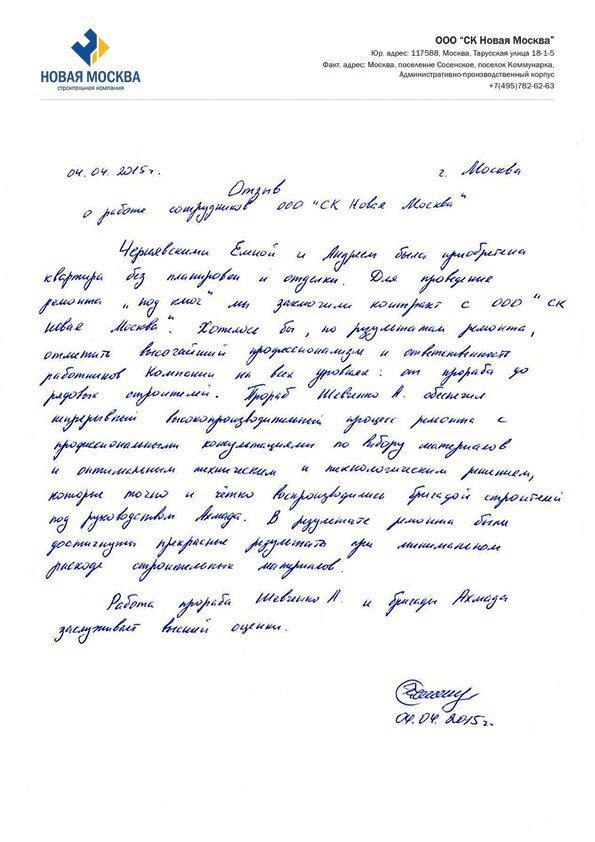 ООО "СК Новая Москва"
Юр. адрес: 117588, Москва, Тарусская улица 18-1-5
Факт. адрес: Москва, поселение Сосенское, поселок Коммунарка,
Административно-производственный корпус
+7(495)782-62-63
НОВАЯ МОСКВА
строительная компания
04.04.2015г. г. Москва
Отзыв
о работе сотрудников ООО "СК Новая Москва"
Чернявскими Еленой и Андреем была приобретена
квартира без планировки и отделки. Для проведение
ремонта „под ключ" мы заключили контракт с ООО "СК
Новая Москва". Хотелось бы, по результатам ремонта,
отметить высочайший профессионализм и ответственность
работников Компании на всех уровнях: от прораба до
рядовых строителей. Прораб Шевченко А. обеспечил
непрерывный высокопроизводительный процесс ремонта с
профессиональными консультациями по выбору материалов
и оптимальным техническим и технологическим решением,
которые точно и чётко воспроизводились бригадой строителей
под руководством Ахмада. В результате ремонта были
достигнуты прекрасные результаты при минимальном
расходе строительных материалов.
Работа прораба Шевченко А. и бригады Ахмада
заслуживает высшей оценки.
04.04.2015г.